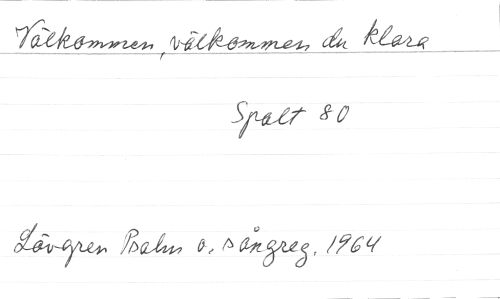 Välkommen, välkommen du klara
Spalt 80
Lövgren Psalm o. sångreg. 1964